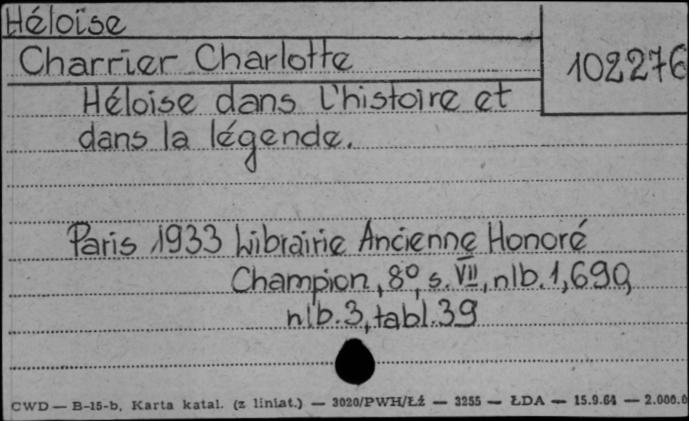 Héloïse
Charrier Charlotte
102276
Héloise dans l'histoire et
dans la légende.
Paris 1933 Librairie Ancienne Honoré
Champion, 8º, s. VII, nlb. 1, 690,
nlb. 3, tabl. 39
CWD — B-15-b, Karta katal. (z liniat.) — 3020/PWH/Łź — 3255 — ŁDA — 15.9.61 — 2.000.0